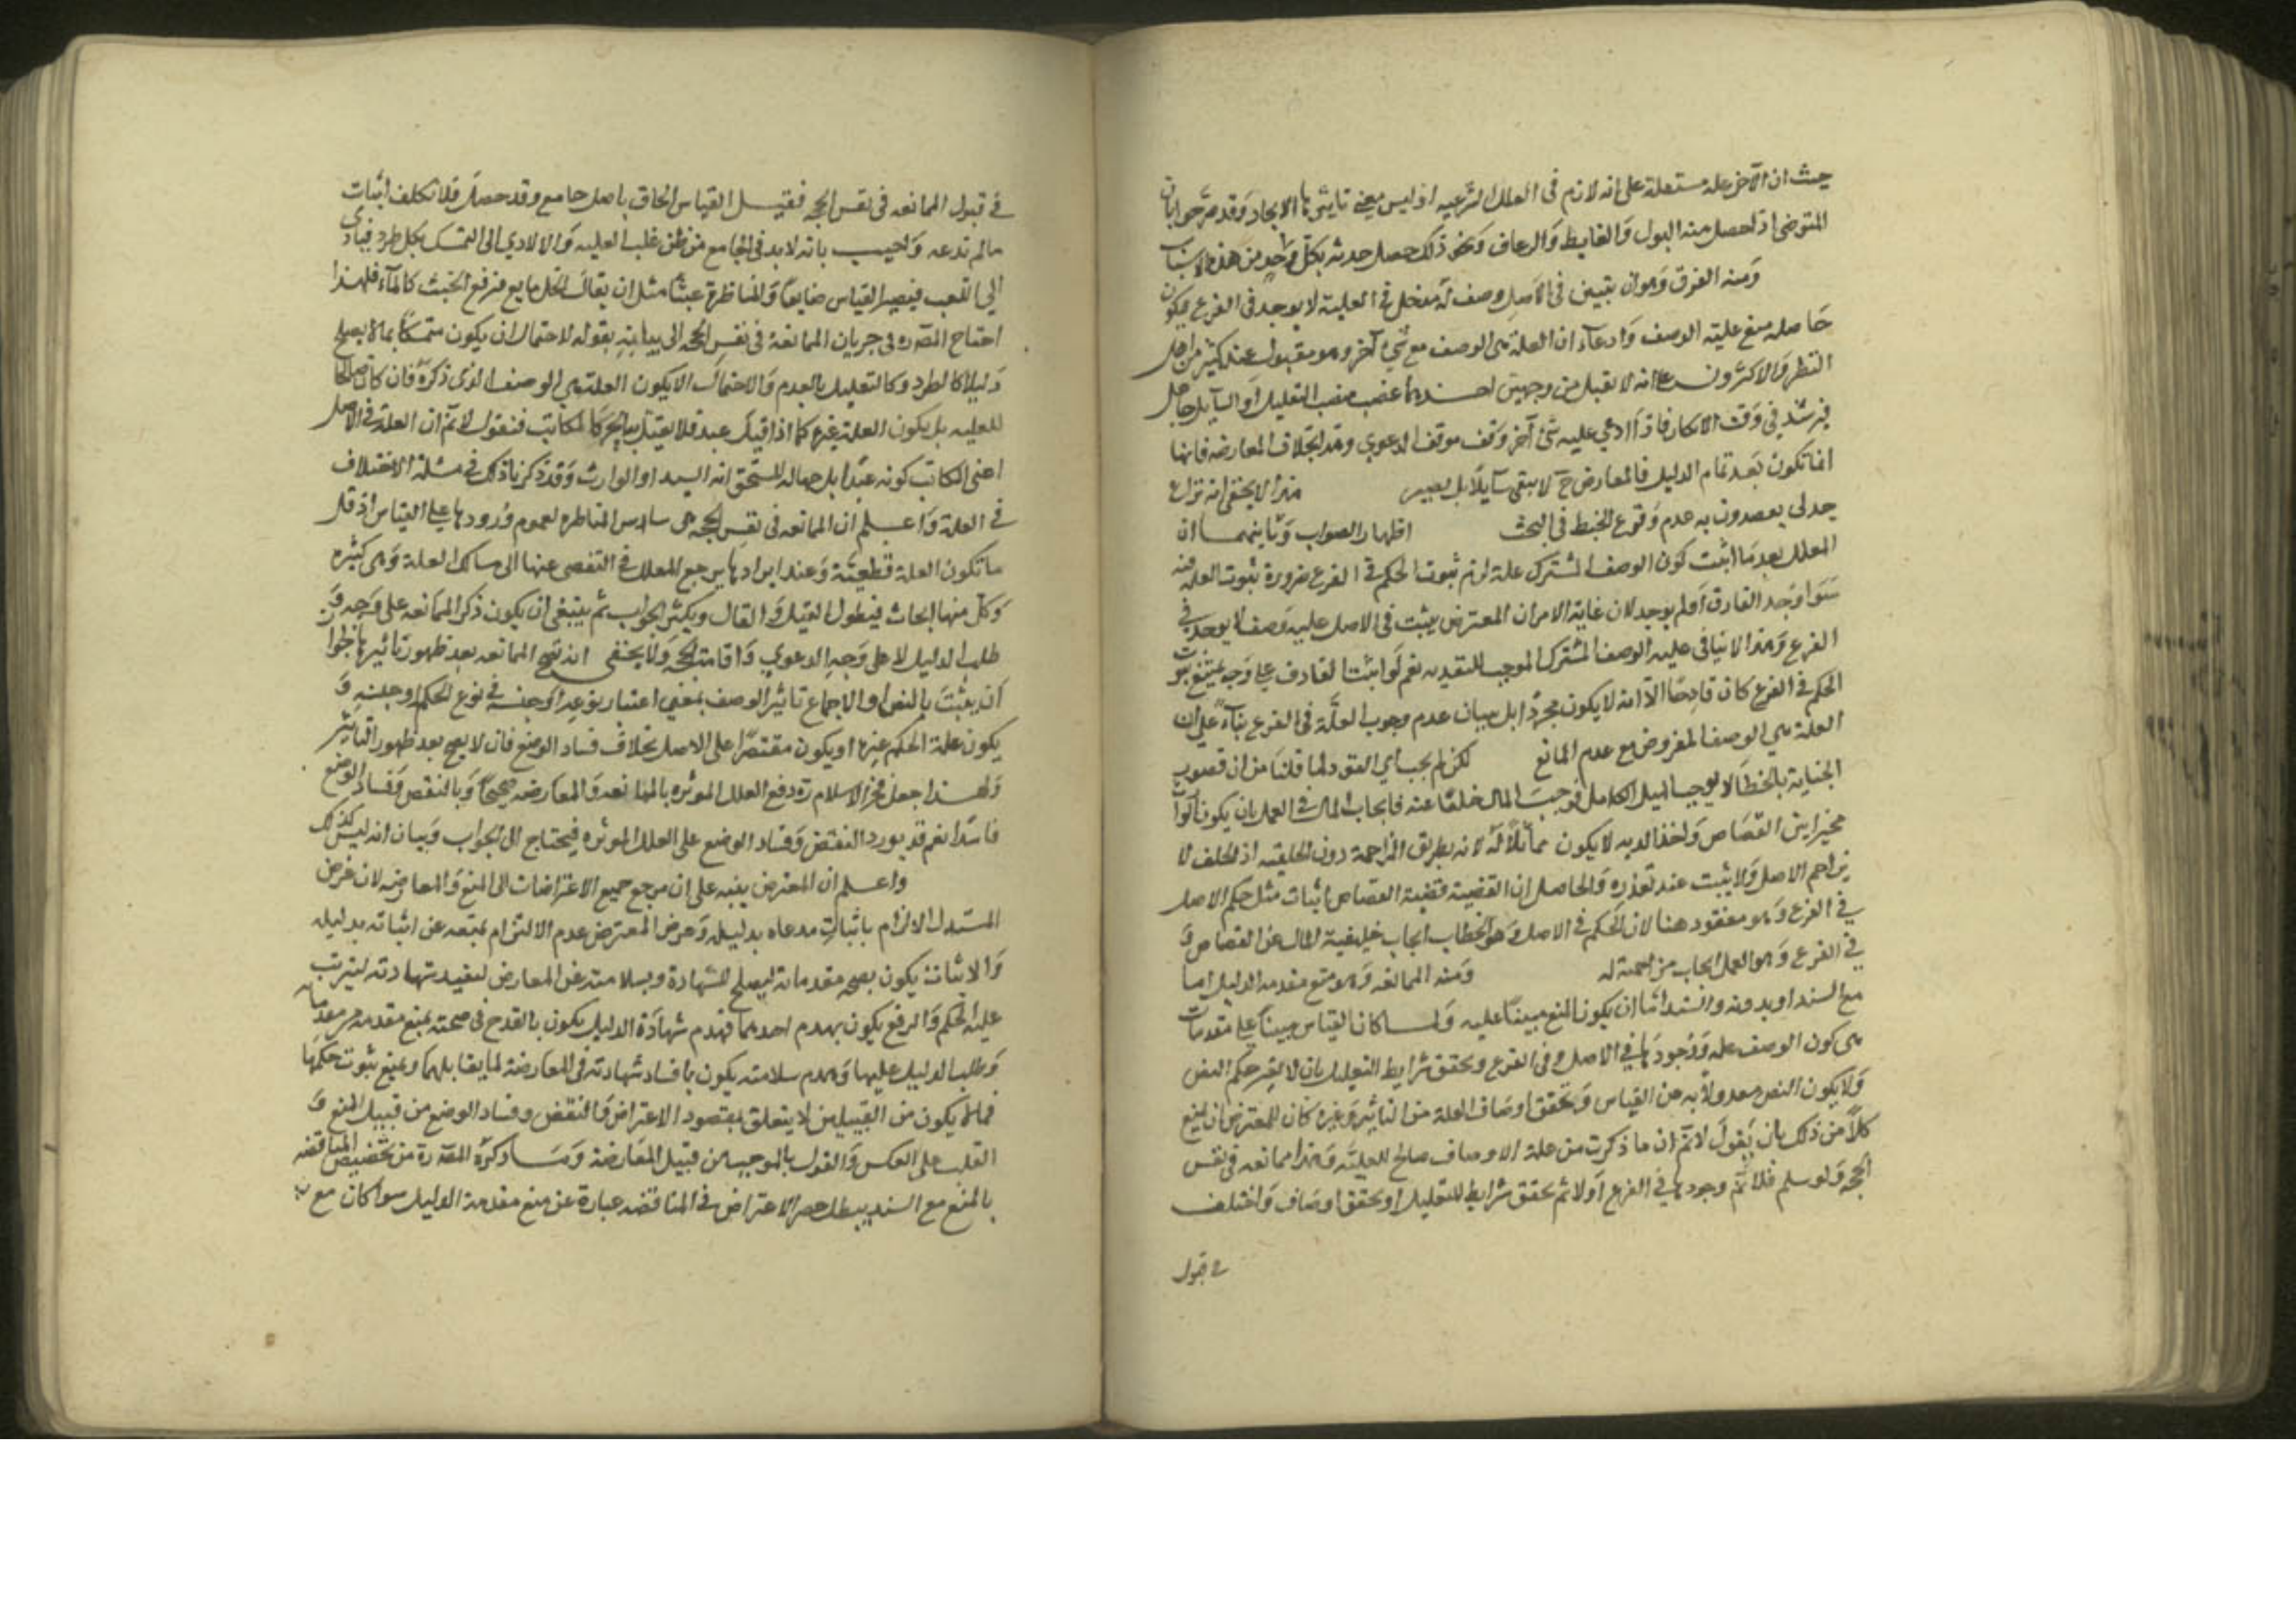 حيث ان الآخر علة مستعلة على انه لازم فى العلل الشرعيه اذ ليس معنى تاثيرها الايجاد وقد مر جوابان
المتوضى اذ لحصل منه البول والغايط والرعاف ونحو ذلك حصل حدثه بكل واحد من هذه الاسباب
ومنه الفرق وهو ان يتبين فى الاصل وصف له مدخل فى العلية لا يوجد فى الفرع فيكون
حاصله منع علية الوصف وادعآء ان العلة هى الوصف مع شئ آخر وهو مقبول عند كثير من اهل
النظر والاكثرون على انه لا يقبل من وجهين احدهما غصب منصب التعليل اذ السآيل جاهل
فيرشد فى وقت الانكار فاذا ادعى عليه شئ آخر وقف موقف الدعوى وهذا بخلاف المعارضه فانها
انما تكون بعد تمام الدليل فالمعارض ح لا يبقى سآيلا بل يصير هذا لا يخفى انه نزاع
جدلى يقصدون به عدم وقوع الخبط فى البحث اظهار الصواب وثانيهما ان
المعلل بعد ما اثبت كون الوصف المشترك علة لزم ثبوت الحكم فى الفرع ضرورة ثبوت العلة فيه
سوا وجد الفارق او لم يوجد لان غاية الامر ان المعترض يثبت فى الاصل علية وصف لا يوجد فى
الفرع وهذا لا ينافى علية الوصف المشترك الموجب للتعديه نعم لو اثبت الفارق على وجه يمتنع ثبوت
الحكم فى الفرع كان قادحا الا انه لا يكون مجردا بل بيان عدم وجوب العلة فى الفرع بنآء على ان
العلة هى الوصف المفروض مع عدم المانع لكن لم يجب اى القود لما قلنا من ان قصور
الجناية بالخطأ لا يوجب المثل الكامل فوجب المال خلفا عنه فايجاب المال فى العمد بان يكون الوارث
مخيرا بين القصاص واخذ الديه لا يكون مماثلا له لانه بطريق المزاحمة دون الخلفيه اذ الخلف لا
يزاحم الاصل ولا يثبت عند تعذره والحاصل ان القضية قضية القصاص اثبات مثل حكم الاصل
فى الفرع وهو مفقود هنا لان الحكم فى الاصل وهو الخطاب ايجاب خليفية المال عن القصاص و
فى الفرع وهو العمد ايجاب مزاحمته له ومنه الممانعه وهو منع مقدمه الدليل اما
مع السند او بدونه والسند اما ان يكون المنع مبينا عليه ولما كان القياس مبينا على مقدمات
هى كون الوصف علة ووجودها فى الاصل وفى الفرع وتحقق شرايط التعليل بان لا يغير حكم النص
ولا يكون النص معدولا به عن القياس وتحقق اوصاف العلة من التاثير وغيره كان للمعترض ان يمنع
كلا من ذلك بان يقول لا نم ان ما ذكرت من علة الاوصاف صالح للعليه وهذا ممانعه فى نفس
الحجه ولو سلم فلا نم وجودها فى الفرع او لا نم تحقق شرايط للتعليل او تحقق اوصاف واختلف
فى قبول
فى قبول الممانعه فى نفس الحجه فقيل القياس الحاق باصل جامع وقد حصل فلا نكلف اثبات
مالم تدعه واجيب بانه لا بد فى الجامع من ظن غلب العليه والا لادي الى التمسك بكل طرد فيادى
الى اللعب فيصير القياس ضايعا والمناظرة عبثا مثل ان يقال الخل مايع فيرفع الخبث كالمآء فلهذا
احتاج المص ره فى جريان الممانعة فى نفس الحجه الى بيانه بقوله لاحتمال ان يكون متمسكا بمالا يصلح
دليلا كالطرد وكالتعليل بالعدم والاحتمال الا يكون العلة هى الوصف الذى ذكره فان كان صالحا
للعليه بل يكون العلة غيره كما اذا قيل عبد فلا يقتل به الحر كالمكاتب فنقول لا نم ان العلة فى الاصل
اعنى المكاتب كونه عبدا بل جهالة المستحق انه السيد او الوارث وقد ذكرنا ذلك فى مسئلة الاختلاف
فى العلة واعلم ان الممانعه فى نفس الحجه هى ساس المناظره لعموم ورودها على القياس اذ قل
ما تكون العلة قطعية وعند ايرادها يرجع المعلل فى التفصى عنها الى مسالك العلة وهى كثيره
وكل منها ابحاث فيطول القيل والقال ويكثر الجواب ثم ينبغى ان يكون ذكر الممانعه على وجه
طلب الدليل لا على وجه الدعوى واقامة الحجه ولا يخفى انه تتجه الممانعه بعد ظهور تاثيرها لجواز
ان يثبت بالنص او الاجماع تاثير الوصف بمعنى اعتبار نوعه او جنسه فى نوع الحكم او جنسه و
يكون علة الحكم غيرها او يكون مقتصرا على الاصل بخلاف فساد الوضع فانه لا يصح بعد ظهور التاثير
ولهذا جعل فخر الاسلام ره دفع العلل الموثره بالممانعه والمعارضه صحيحا وبالنقض وفساد الوضع
فاسدا نعم قد يورد النقض وفساد الوضع على العلل الموثره فيحتاج الى الجواب وبيان انه ليس كذلك
واعلم ان المعترض ينبه على ان مرجع جميع الاعتراضات الى المنع والمعارضه لان غرض
المستدل الالزام باثبات مدعاه بدليله وغرض المعترض عدم الالتزام بمنعه عن اثباته بدليله
والاثبات يكون بصحه مقدماته ليصلح للشهادة وبسلامته عن المعارض لتفيد شهادته ليترتب
عليه الحكم والرفع يكون بهدم احدهما فهدم شهادة الدليل يكون بالقدح فى صحته بمنع مقدمه من مقدماته
وطلب الدليل عليها وهدم سلامته يكون بافساد شهادته فى المعارضة لما يقابلهما ويمنع ثبوت حكمها
فمالا يكون من القبيلين لا يتعلق بمقصود الاعتراض فالنقض وفساد الوضع من قبيل المنع و
القلب على العكس والقول بالموجب من قبيل المعارضة وما ذكره المص ره من تخصيص المناقضه
بالمنع مع السند يبطل حصر الاعتراض فى المناقضه عبارة عن منع مقدمة الدليل سوا كان مع